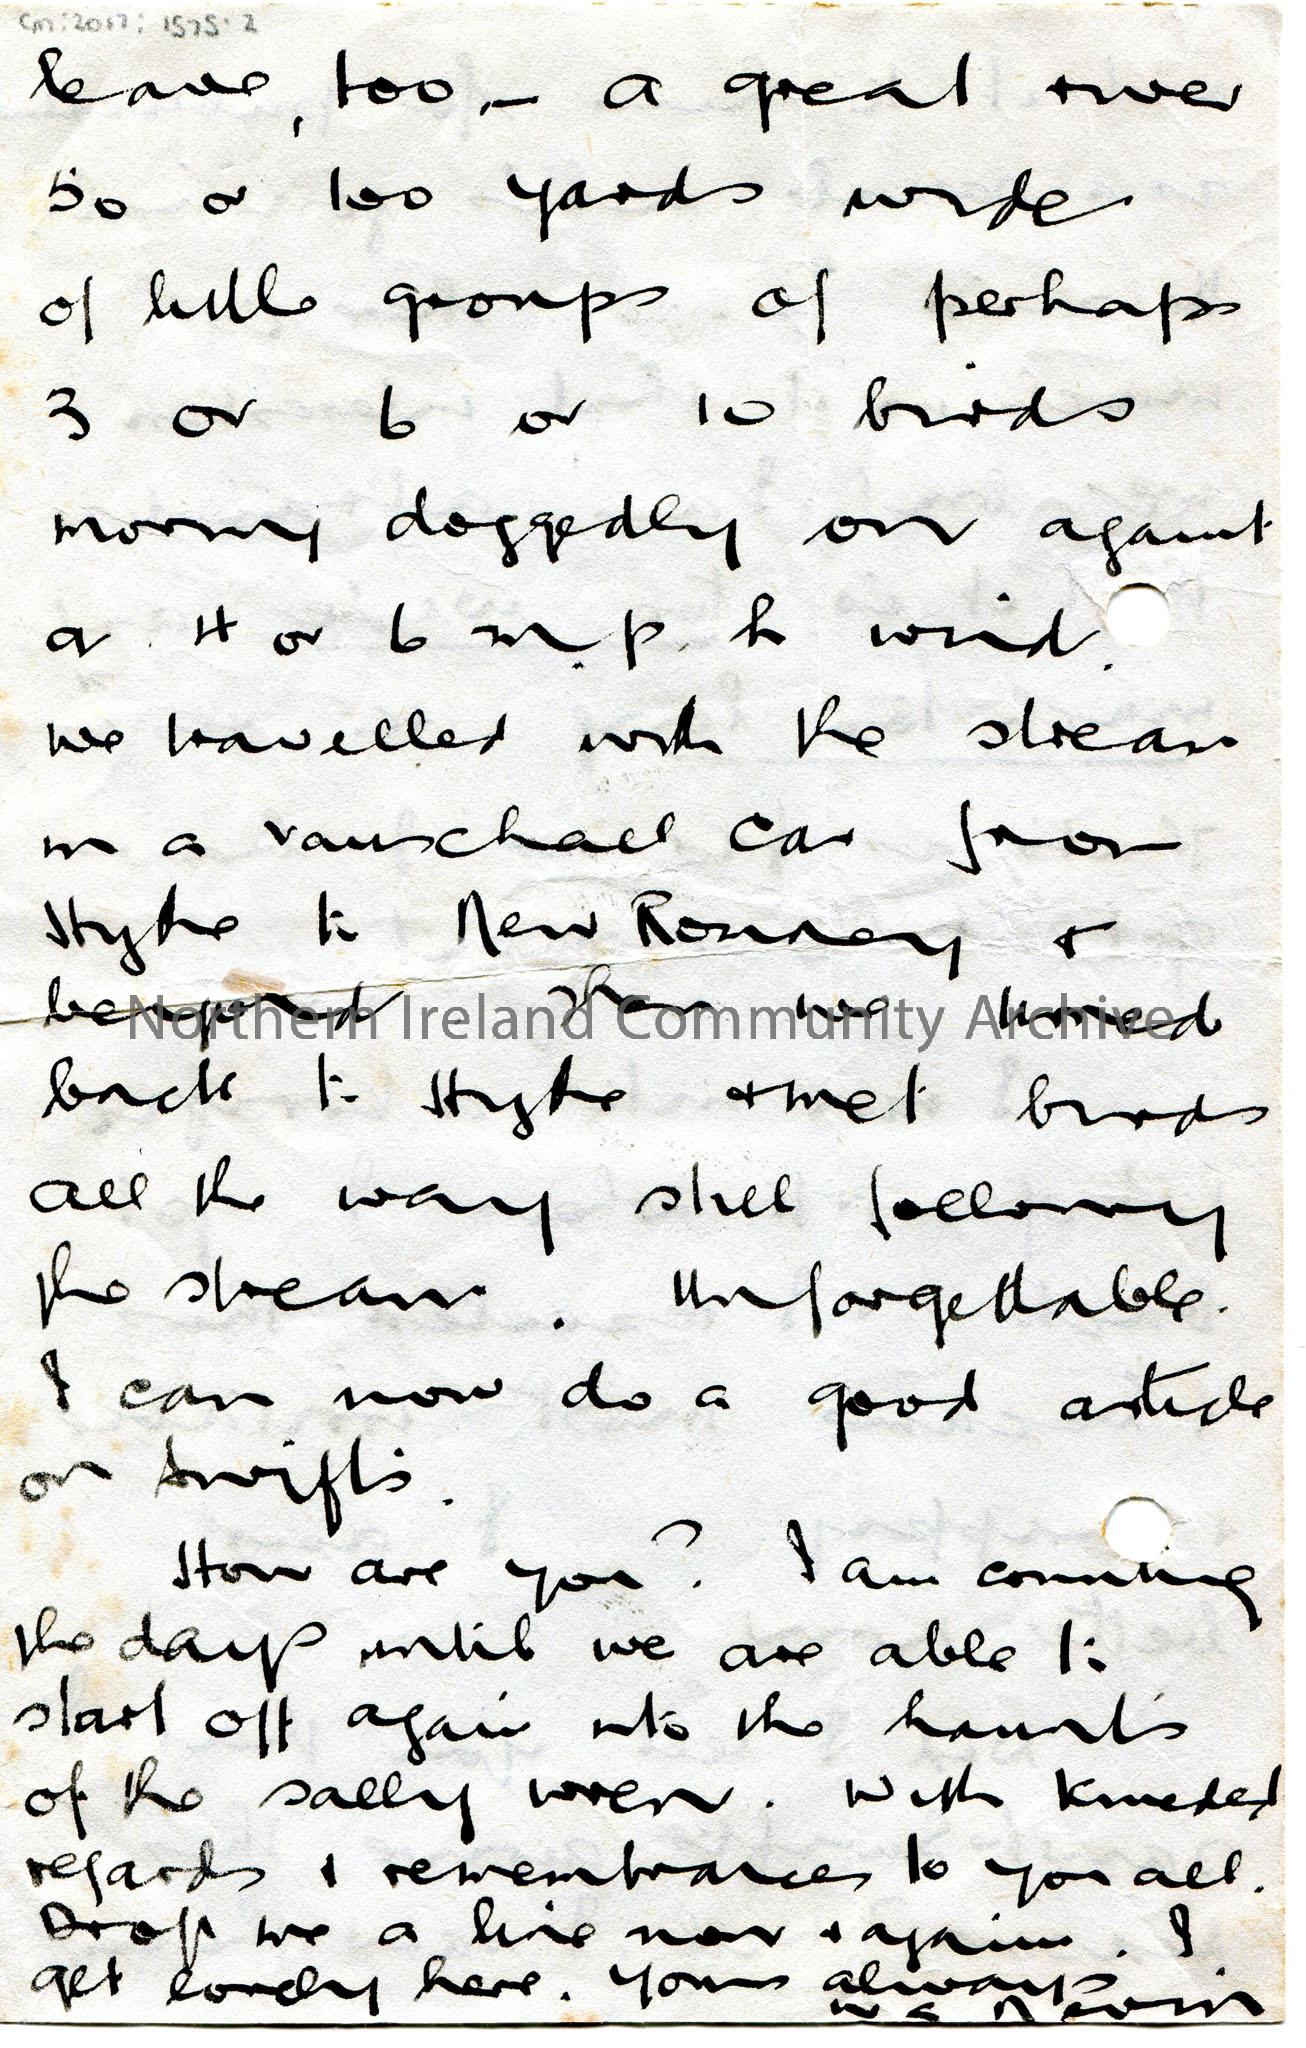 CM:2017:1575:2
leave, too, – a great river
50 or 100 yards wide
of little groups of perhaps
3 or 6 or 10 birds
moving doggedly on against
a 4 or 6 m.p.h wind.
we travelled with the stream
in a vauxhall car from
Hythe to New Romney +
beyond then we turned
back to Hythe + met birds
all the way still following
the stream. Unforgettable.
I can now do a good article
on Swifts.
How are you? I am counting
the days until we are able to
start off again into the haunts
of the sally wren. With kindest
regards & remembrances to you all.
Drop me a line now & again. I
get lonely here. Yours always
Northern Ireland Community Archive